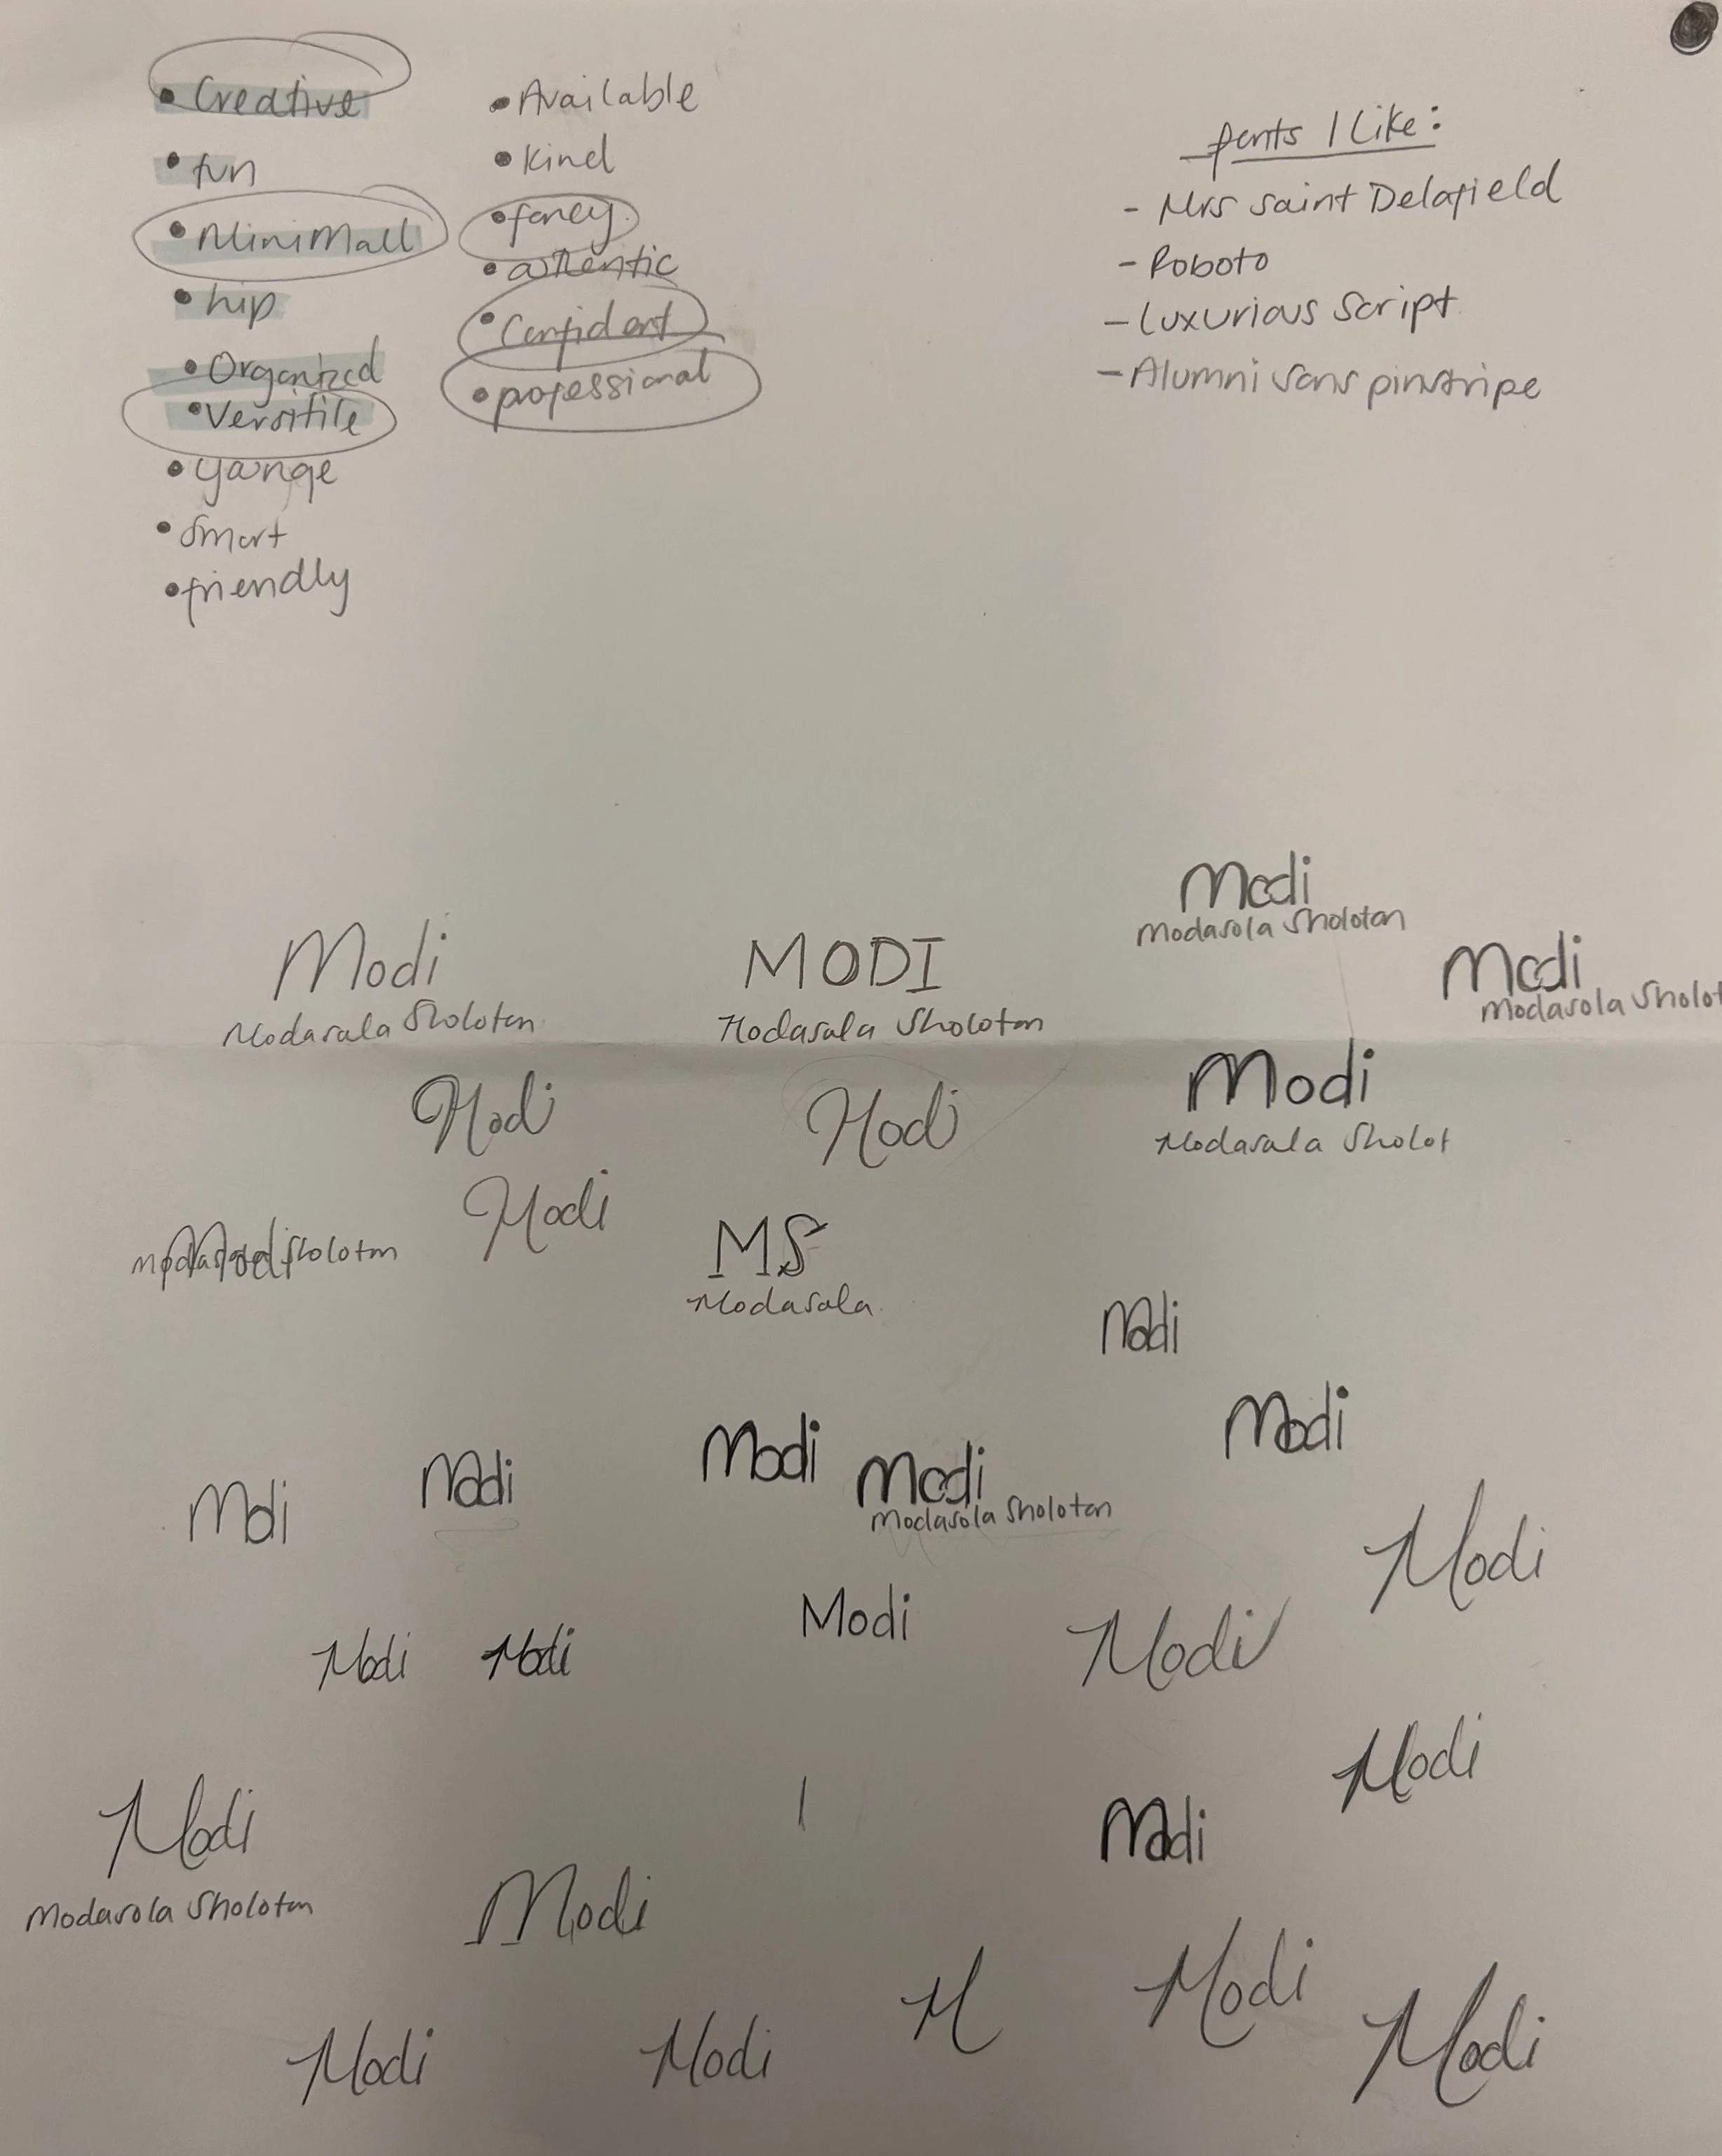 • Creative
• fun
• MiniMall
• hip
• Organized
• Versitile
• younge
• Smart
• friendly
• Available
• Kind
• fancy
• authentic
• Confident
• professional
fonts I Like:
- Mrs saint Delafield
- Roboto
- Luxurious Script
- Alumni sans pinstripe
Modi
Modasola Sholotan
Modi
Modasola Sholotan
MODI
Modasola Sholotan
Modi
Modasola Sholot
Modi
Modi
Modi
Modasola Sholot
Modi
Modasola Sholotan
Modi
MS
Modasola
Modi
Modi
Modi
Modi
Modi
Modi
Modasola Sholotan
Modi
Modi
Modi
Modi
Modi
Modi
Modi
Modasola Sholotan
Modi
Modi
Modi
M
Modi
Modi
Modi
Modi